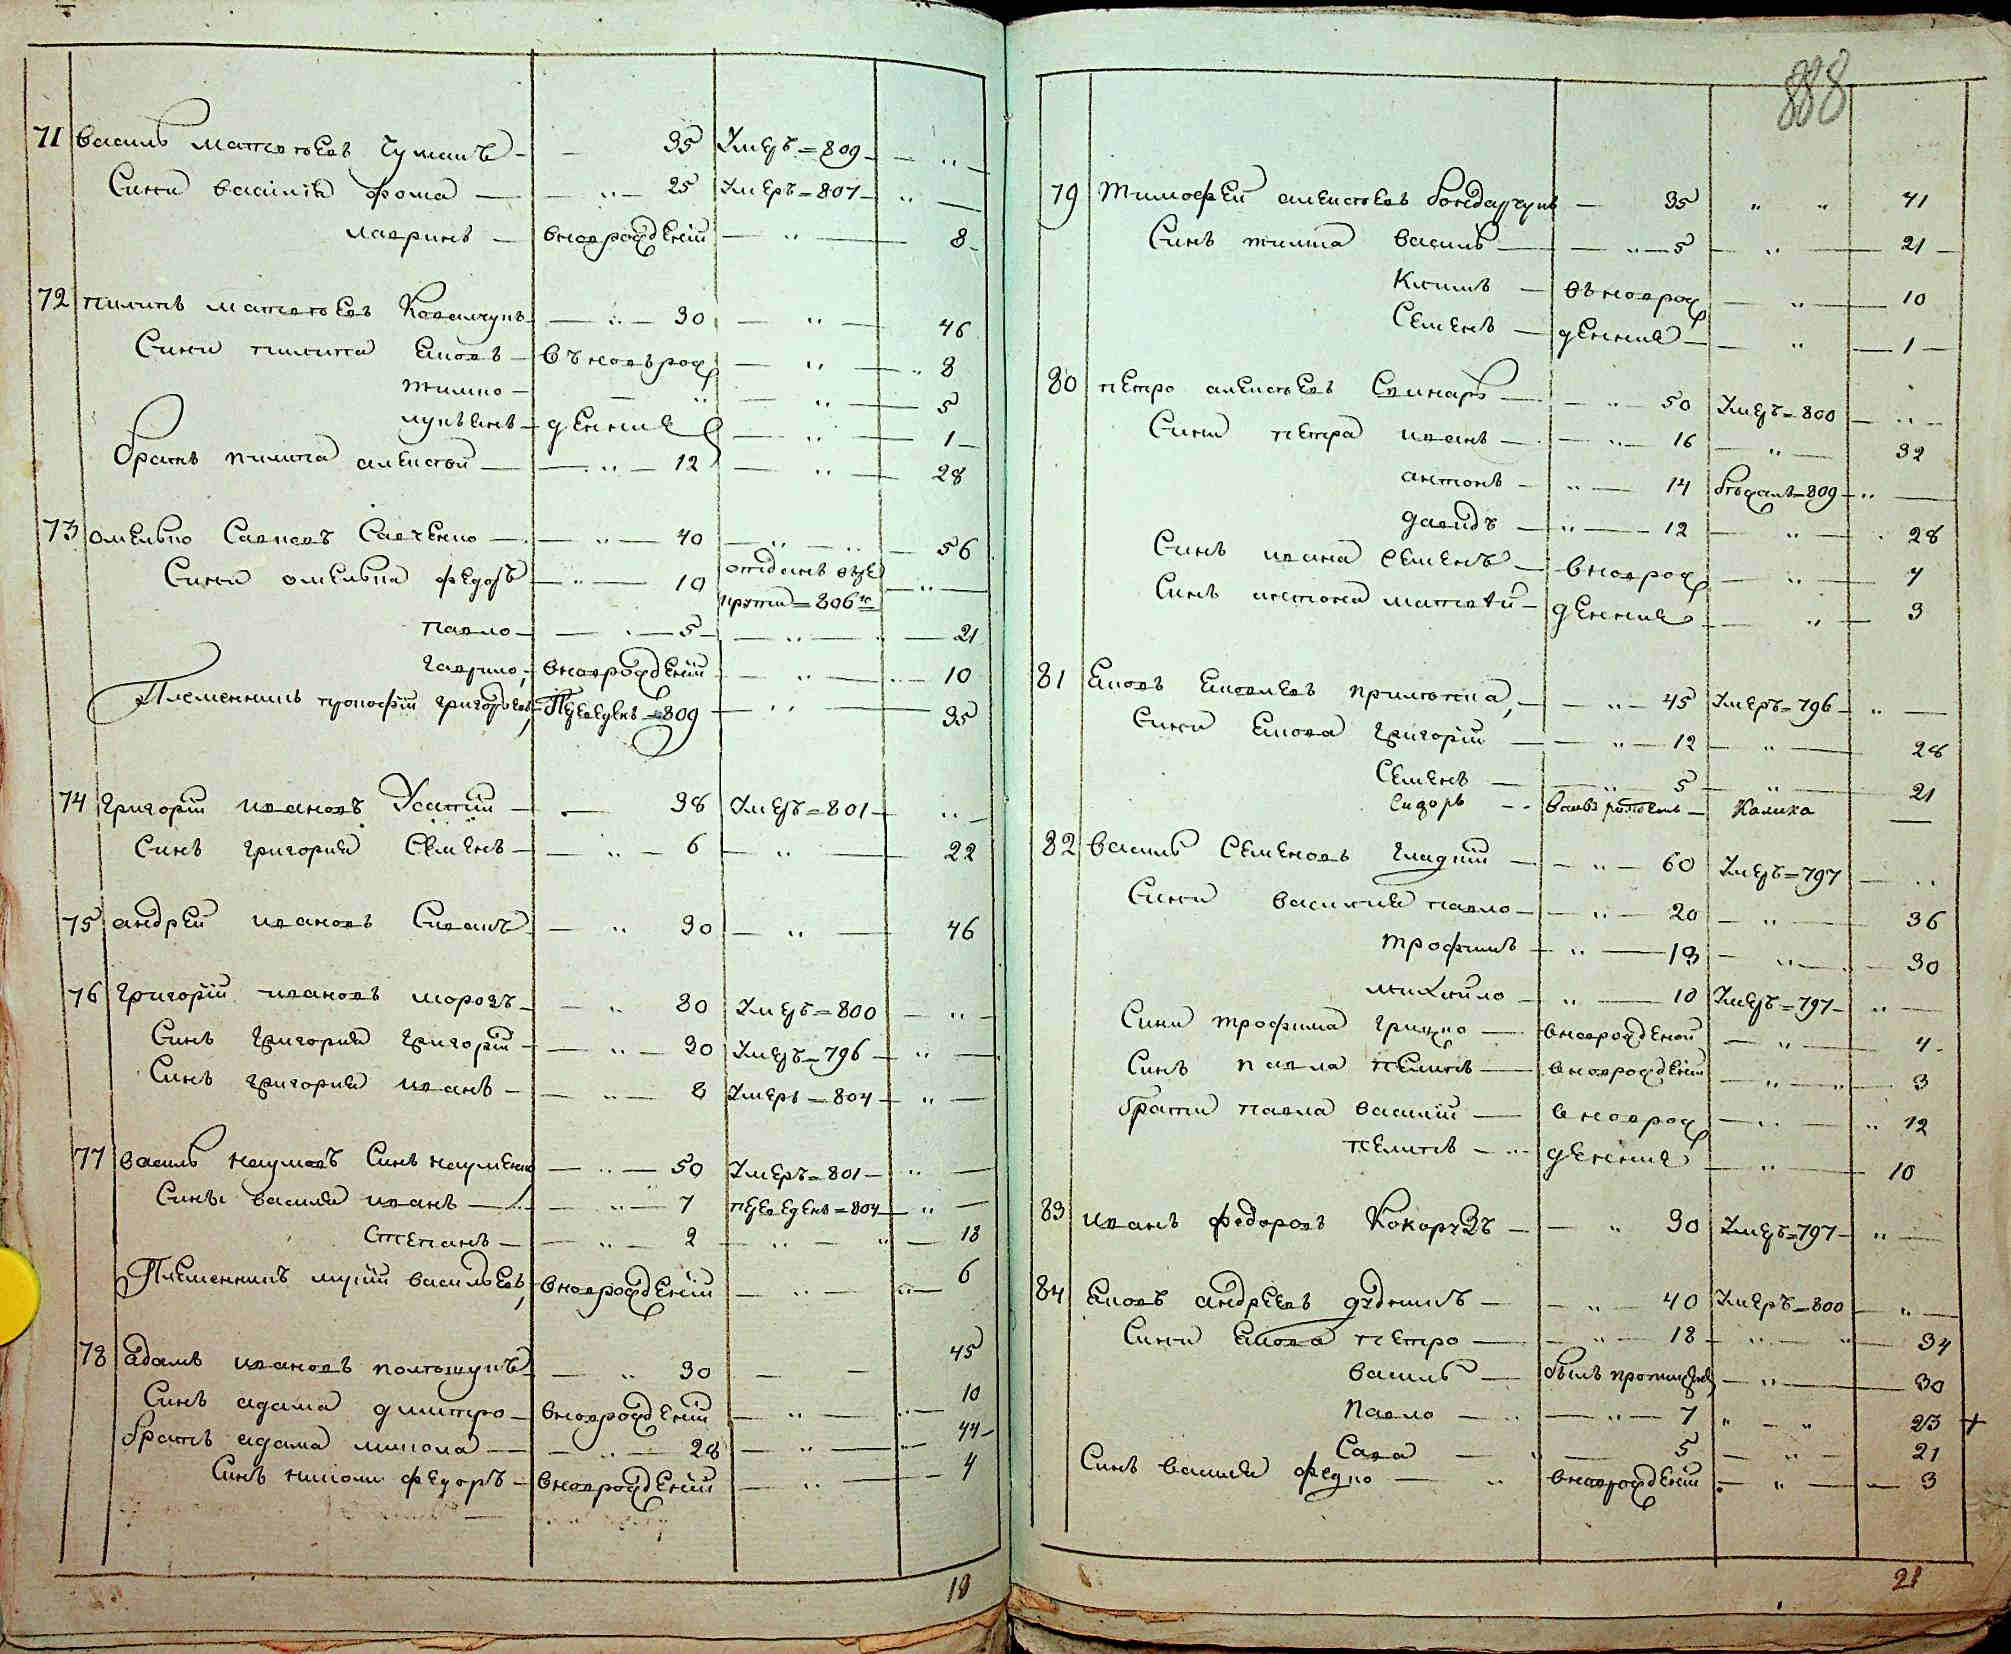 888
71 Василь матвеевъ Чумакъ 35 Умеръ = 809
Сини василія фома 25 Умеръ = 807
лавринъ вноврожденій 8
72 пилипъ матвеевъ Ковалчукъ 30 46
Сини пилипа Яковъ въноврож 8
тимко 5
лукьянъ денния 1
братъ пилипа алексей 12 28
73 омелько Савковъ Савченко 40 56
Сини омелька федоръ 10 отданъ врек
крути = 806го
павло 5 21
гаврило вноврожденій 10
Племенникъ прокофій григорьевъ Переведенъ = 809 35
74 григорій ивановъ Усатий 38 Умеръ = 801
Синъ григория Семенъ 6 22
75 андрей ивановъ Сивакъ 30 46
76 григорій ивановъ морозъ 80 Умеръ = 800
Синъ григория григорій 30 Умеръ = 796
Синъ григория иванъ 8 Умеръ = 804
77 василь наумовъ Синъ науменко 50 Умеръ = 801
Сины василя иванъ 7 переведенъ = 804
Степанъ 2 18
Племенникъ васильевъ, вноврожденій 6
78 адамъ ивановъ 30 45
Синъ адама дмитро вноврожденій 10
братъ адама микола 28 44
Синъ николи федоръ вноврожденій 4
18
79 Тимофей алексеевъ бондарчукъ 35 41
Синъ тимка василь 5 21
Климъ въноврож 10
Семенъ дення 1
80 петро алексеевъ Свинаръ 50 Умеръ = 800
Сини петра иванъ 16 32
антонъ 14 бежалъ = 809
давидъ 12 28
Синъ ивана Семенъ вноврож 7
Синъ антона матвей денния 3
81 Яковъ Яковлевъ 45 Умеръ = 796
Сини Якова григорій 12 28
Семенъ 5 21
Сидоръ Калика
82 василь Семеновъ гладкій 60 Умеръ = 797
Сини василия павло 20 36
трофимъ 13 30
михайло 10 Умеръ = 797
Сини трофима грицко вноврожденой 4
Синъ павла пилипъ вноврожденій 3
брати павла василій вноврож 12
пилипъ денния 10
83 иванъ федоровъ 30 Умеръ = 797
84 Яковъ андреевъ дудникъ 40 Умеръ = 800
Сини Якова петро 18 34
василь былъ пропищенъ 30
павло 7 23 +
Сава 5 21
Синъ василя федко вноврожденій 3
21